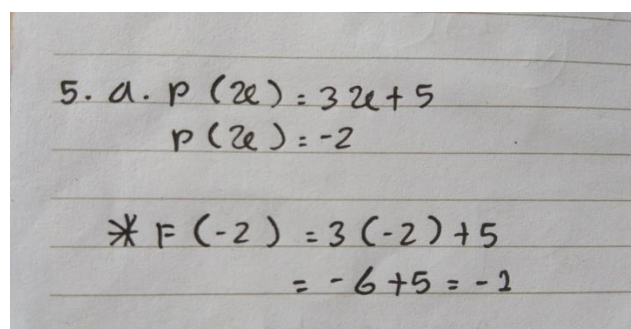 5. a. P (x) = 3x + 5
P (x) = -2
* F (-2) = 3 (-2) + 5
= -6 + 5 = -1